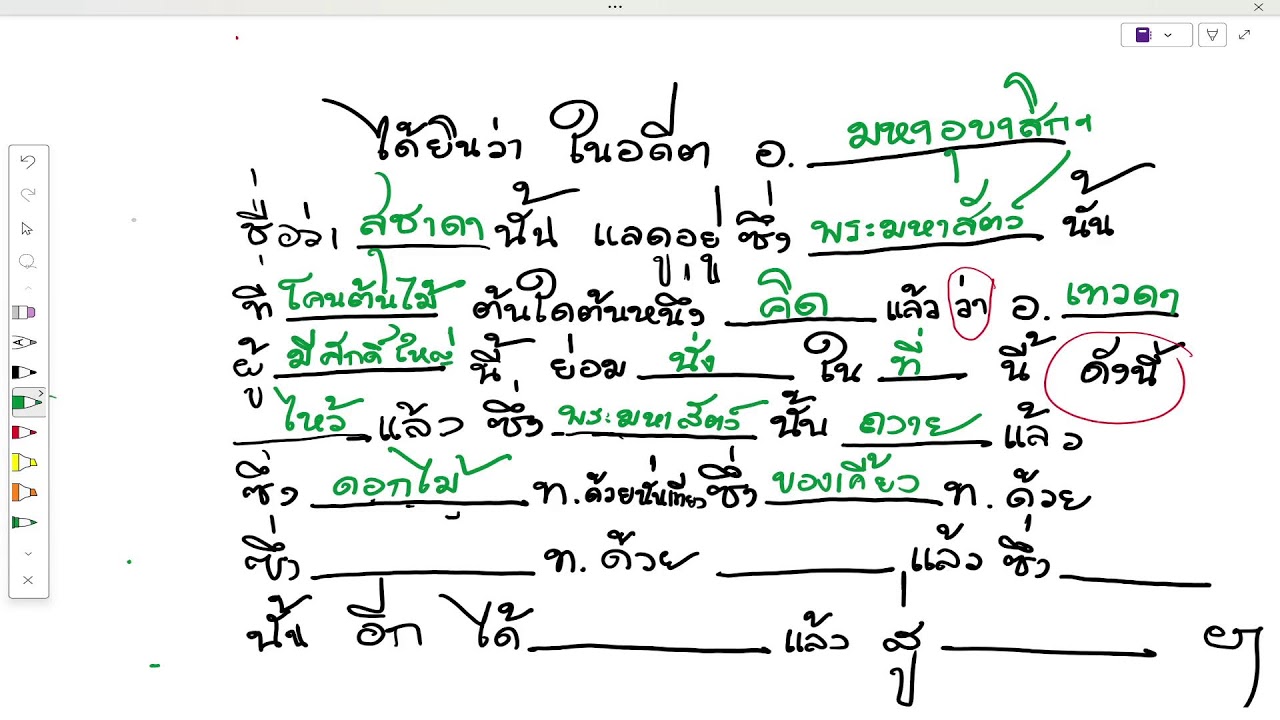 ได้ยินว่า ในอดีต อ. มหาอุบาสิกา
ชื่อว่า สุชาดา นั้น แลดูอยู่ ซึ่ง พระมหาสัตว์ นั้น
ที่ โคนต้นไม้ ต้นใดต้นหนึ่ง คิด แล้ว ว่า อ. เทวดา
ผู้ มีศักดิ์ใหญ่ นี้ ย่อม นั่ง ใน ที่ นี้ ดังนี้
ไหว้ แล้ว ซึ่ง พระมหาสัตว์ นั้น ถวาย แล้ว
ซึ่ง ดอกไม้ ท. ด้วยนั่นเทียว ซึ่ง ของเคี้ยว ท. ด้วย
ซึ่ง ____________ ท. ด้วย ____________ แล้ว ซึ่ง ____________
นั้น อีก ได้ ____________ แล้ว สู่ ____________ ฯ